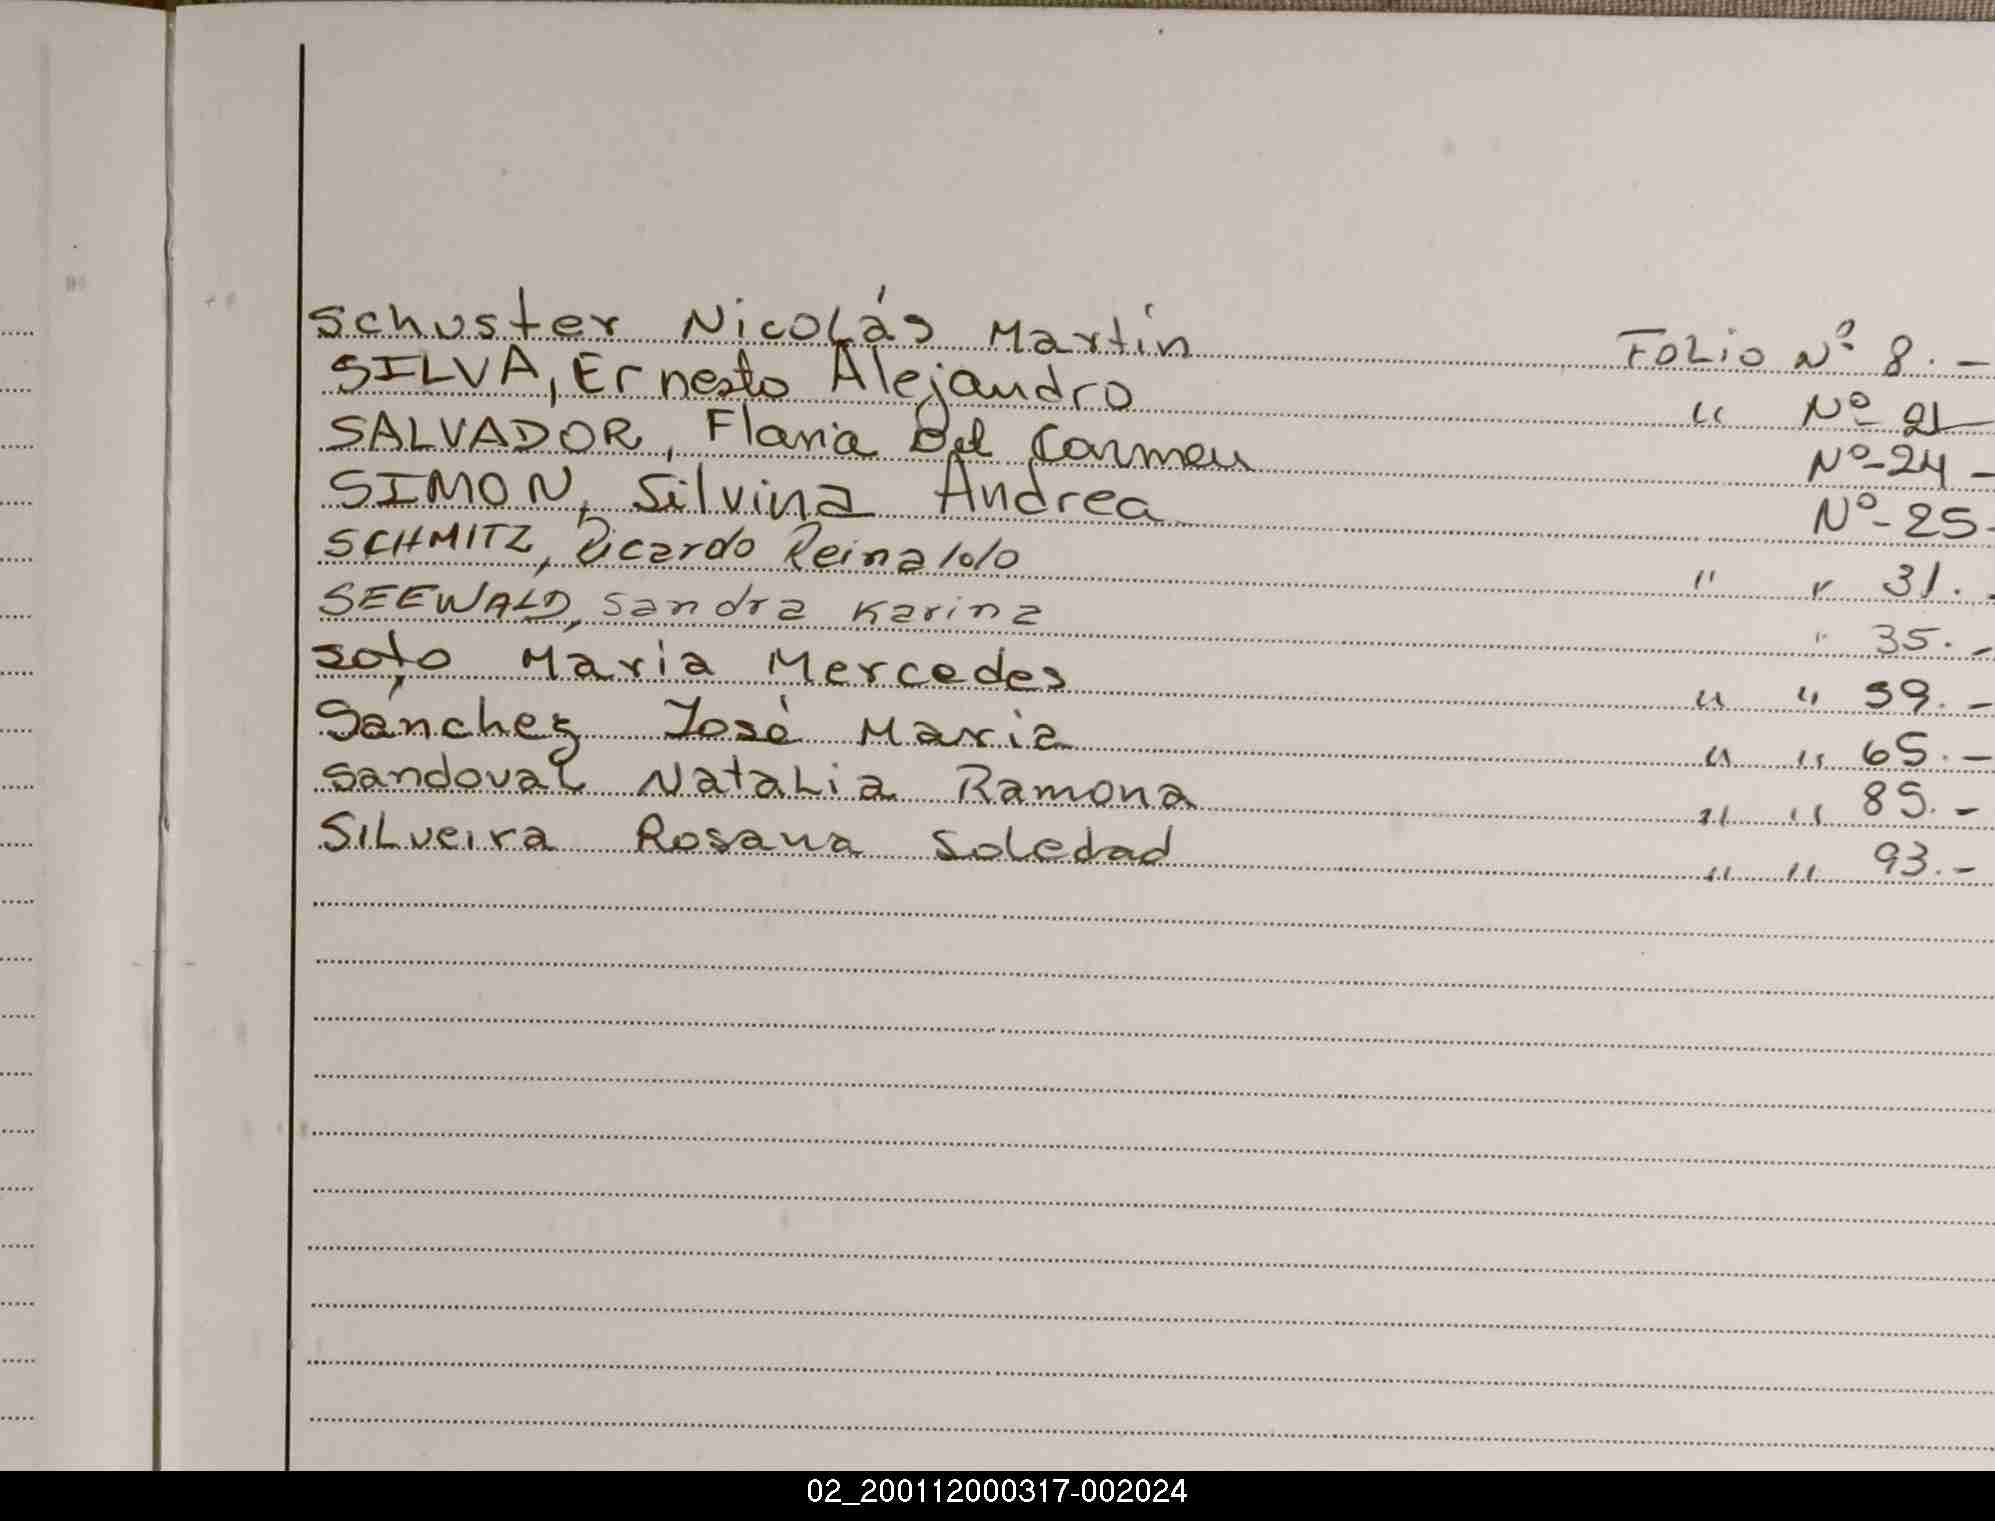 Schuster Nicolás Martín Folio Nº 8.-
SILVA, Ernesto Alejandro " Nº 21
SALVADOR, Flavia Del Carmen Nº-24-
SIMON, Silvina Andrea Nº-25-
SCHMITZ, Ricardo Reinaldo " " 31.-
SEEWALD, Sandra Karina " 35.-
Soto Maria Mercedes " " 59.-
Sánchez José Maria " " 65.-
Sandoval Natalia Ramona " " 85.-
Silveira Rosana Soledad " " 93.-
02_200112000317-002024